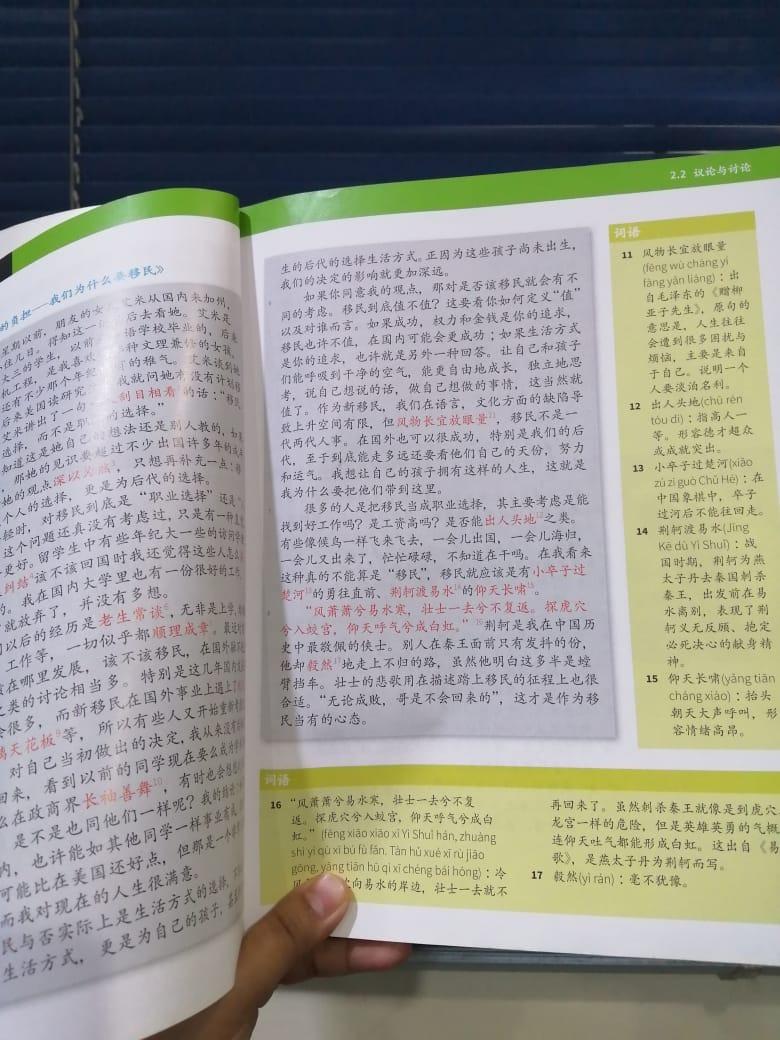 的负担—我们为什么要移民》
星期以前，朋友的女儿艾米从国内来加州，
艾米讲出了一句 刮目相看 的话：“移民
选择，而不是职业的选择。”
知道这是她自己的想法还是别人教的，如果
那她的见识要超过不少出国许多年的成年
她的观点深以为然，只想再补充一点：移
个人的选择，更是为后代的选择。
轻时，对移民到底是“职业选择”还是“
这个问题还真没有考虑过，只是有一种
更好。留学生中有些年纪大一些的访问学
纠结 该不该回国时我还觉得这些人怎么
的。我在国内大学里也有一份很好的工作，
就放弃了，并没有多想。
以后的经历是老生常谈，无非是上学，
工作等，一切似乎都顺理成章。最近
在哪里发展，该不该移民，在国外
之类的讨论相当多。特别是这几年国内
会很多，而新移民在国外事业上遇上了
璃天花板9等，所以有些人又开始重新
对自己当初做出的决定，我从来没有
回来，看到以前的同学现在要么成为
么在政商界长袖善舞10，有时也会想
是不是也同他们一样呢？我的
内，也许能如其他同学一样事业有成，
可能比在美国还好点，但那是一个
而我对现在的人生很满意。
民与否实际上是生活方式的选择，
生活方式，更是为自己的孩子，甚至
2.2 议论与讨论
生的后代的选择生活方式。正因为这些孩子尚未出生，
我们的决定的影响就更加深远。
如果你同意我的观点，那对是否该移民就会有不
同的考虑。移民到底值不值？这要看你如何定义“值”
以及对谁而言。如果成功，权力和金钱是你的追求，
移民也许不值，在国内可能会更成功；如果生活方式
是你的追求，也许就是另外一种回答。让自己和孩子
们能呼吸到干净的空气，能更自由地成长，独立地思
考，说自己想说的话，做自己想做的事情，这当然就
值了。作为新移民，我们在语言，文化方面的缺陷导
致上升空间有限，但风物长宜放眼量11，移民不是一
代两代人事。在国外也可以很成功，特别是我们的后
代，至于到底能走多远还要看他们自己的天份，努力
和运气。我想让自己的孩子拥有这样的人生，这就是
我为什么要把他们带到这里。
很多的人是把移民当成职业选择，其主要考虑是能
找到好工作吗？是工资高吗？是否能出人头地12之类。
有些像候鸟一样飞来飞去，一会儿出国，一会儿海归，
一会儿又出来了，忙忙碌碌，不知道在干吗。在我看来
这种真的不能算是“移民”，移民就应该是有小卒子过
楚河13的勇往直前，荆轲渡易水14的仰天长啸15。
“风萧萧兮易水寒，壮士一去兮不复返。探虎穴
兮入蛟宫，仰天呼气兮成白虹。”16荆轲是我在中国历
史中最敬佩的侠士。别人在秦王面前只有发抖的份，
他却毅然17地走上不归的路，虽然他明白这多半是螳
臂挡车。壮士的悲歌用在描述踏上移民的征程上也很
合适。“无论成败，哥是不会回来的”，这才是作为移
民当有的心态。
词语
11 风物长宜放眼量
(fēng wù cháng yí
fàng yǎn liàng)：出
自毛泽东的《赠柳
亚子先生》，原句的
意思是，人生往往
会遭到很多困扰与
烦恼，主要是来自
于自己。说明一个
人要淡泊名利。
12 出人头地(chū rén
tóu dì)：指高人一
等。形容德才超众
或成就突出。
13 小卒子过楚河(xiǎo
zú zi guò Chǔ Hé)：在
中国象棋中，卒子
过河后不能往回走。
14 荆轲渡易水(Jīng
Kē dù Yì Shuǐ)：战
国时期，荆轲为燕
太子丹去秦国刺杀
秦王，出发前在易
水离别，表现了荆
轲义无反顾、抱定
必死决心的献身精
神。
15 仰天长啸(yǎng tiān
cháng xiào)：抬头
朝天大声呼叫，形
容情绪高昂。
词语
16 “风萧萧兮易水寒，壮士一去兮不复
返。探虎穴兮入蛟宫，仰天呼气兮成白
虹。”(fēng xiāo xiāo xī Yì Shuǐ hán, zhuàng
shì yí qù xī bú fù fǎn. Tàn hǔ xué xī rù jiāo
gōng, yǎng tiān hū qì xī chéng bái hóng)：冷
风 向易水的岸边，壮士一去就不
再回来了。虽然刺杀秦王就像是到虎穴
龙宫一样的危险，但是英雄英勇的气概
连仰天吐气都能形成白虹。这出自《易
歌》，是燕太子丹为荆轲而写。
17 毅然(yì rán)：毫不犹像。